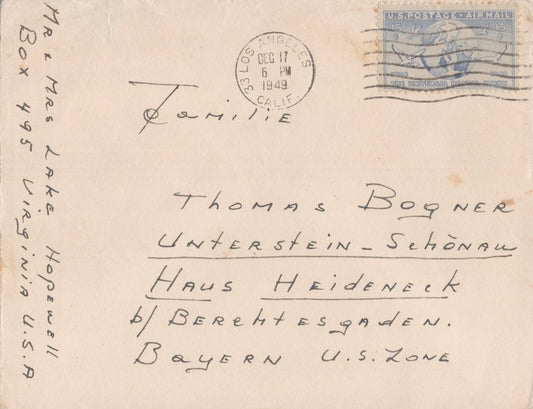 Mr & Mrs Lake Hopewell
Box 495 Virginia U.S.A
LOS ANGELES
33
CALIF.
DEC 17
6 PM
1949
U.S. POSTAGE · AIR MAIL
15 15
Familie
Thomas Bogner
Unterstein-Schönau
Haus Heideneck
b/ Berchtesgaden.
Bayern U.S. Zone